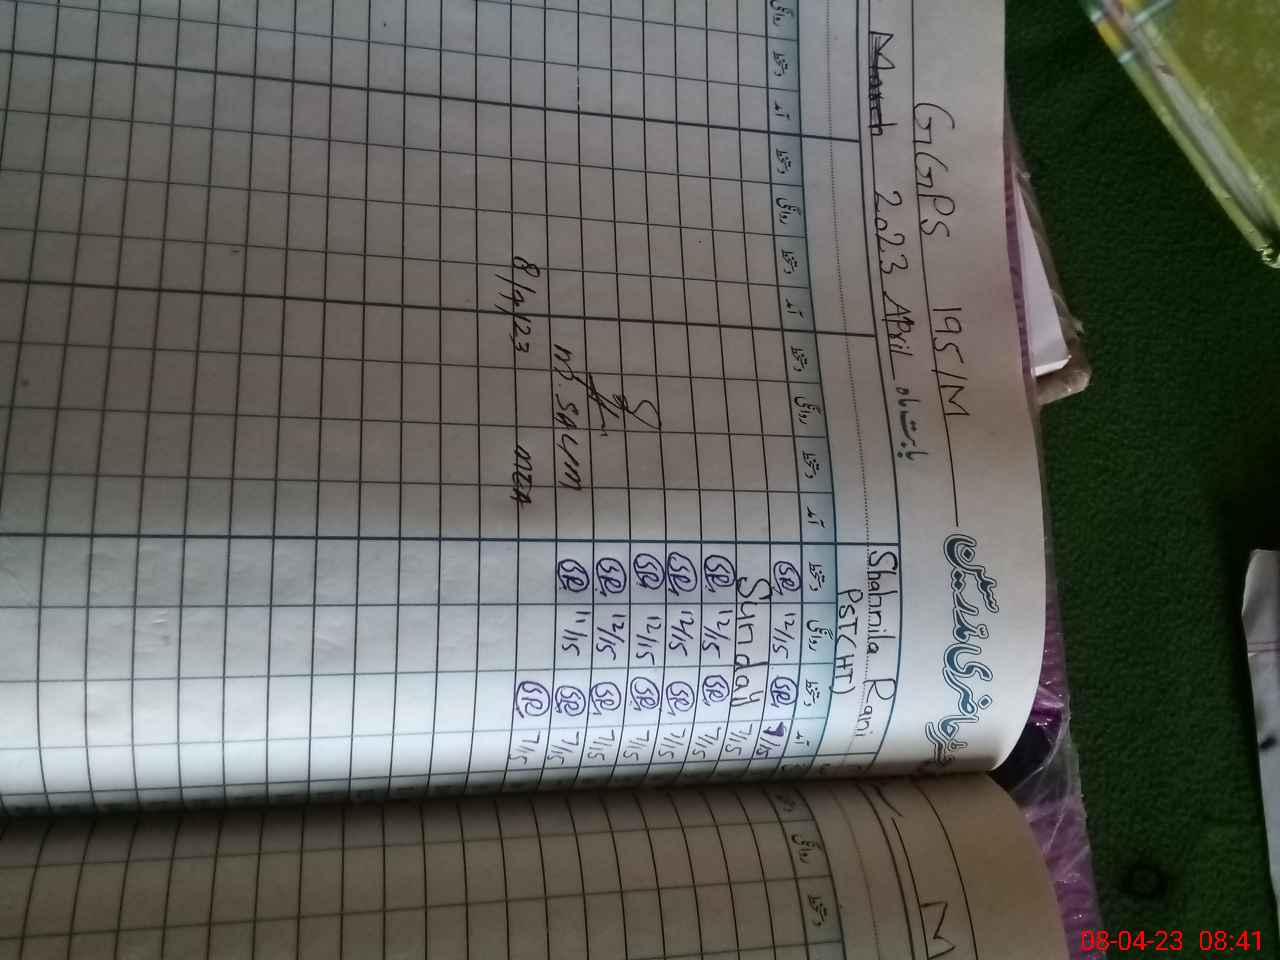 رجسٹر حاضری مدرسین
GGPS 195/M
March 2023 April بابت ماہ
Shahnila Rani
PST(HT)
آمد دستخط روانگی دستخط آمد دستخط روانگی دستخط آمد دستخط روانگی دستخط آمد دستخط روانگی
7/15 SR 12/15 SR
7/15 Sunday
7/15 SR 12/15 SR
7/15 SR 12/15 SR
7/15 SR 12/15 SR
7/15 SR 12/15 SR
7/15 SR 11/15 SR
7/15 SR
MEA
M
دستخط
روانگی
08-04-23 08:41